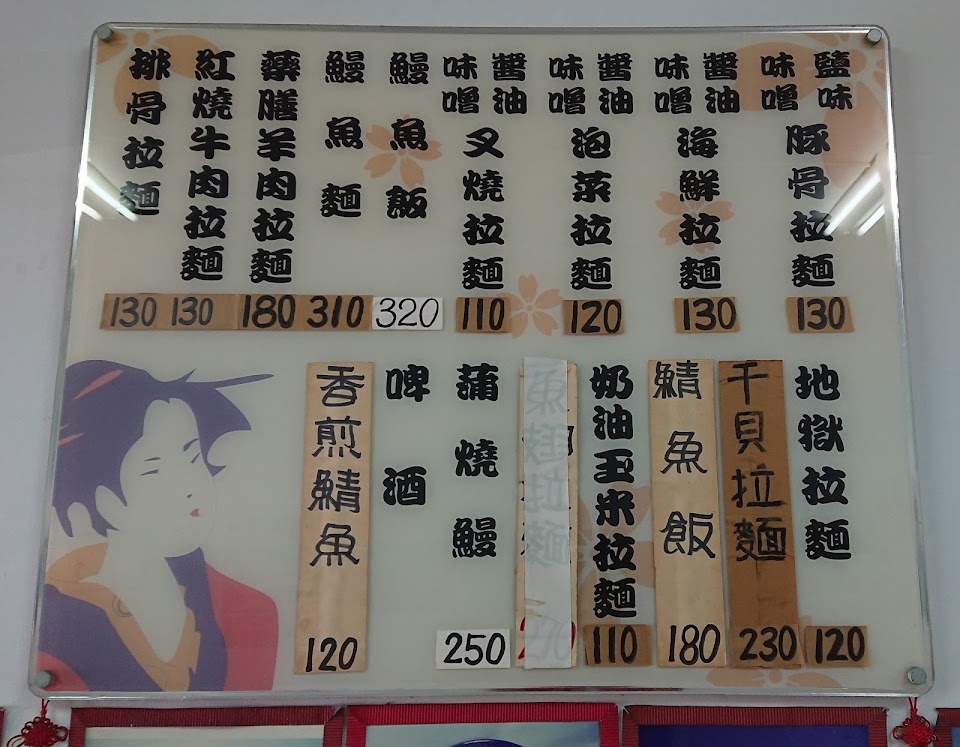 鹽味
味噌
豚骨拉麵
130
醬油
味噌
海鮮拉麵
130
醬油
味噌
泡菜拉麵
120
醬油
味噌
叉燒拉麵
110
鰻魚飯
320
鰻魚麵
310
藥膳羊肉拉麵
180
紅燒牛肉拉麵
130
排骨拉麵
130
地獄拉麵
120
干貝拉麵
230
鯖魚飯
180
奶油玉米拉麵
110
蒲燒鰻
250
啤酒
香煎鯖魚
120